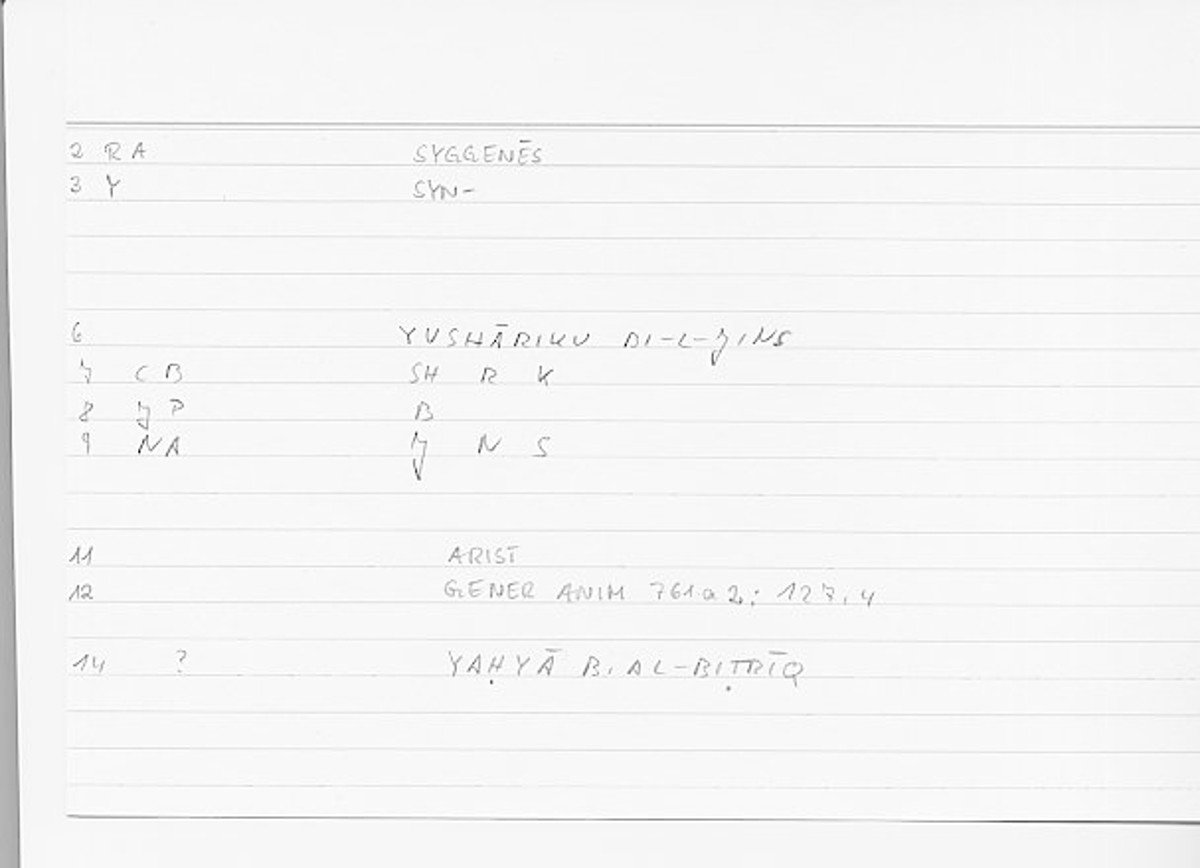 2 RA SYGGENĒS
3 Y SYN-
6 YUSHĀRIKU BI-L-JINS
7 CB SH R K
8 JP B
9 NA J N S
11 ARIST
12 GENER ANIM 761a2; 127,4
14 ? YAḤYĀ B. AL-BIṬRĪQ